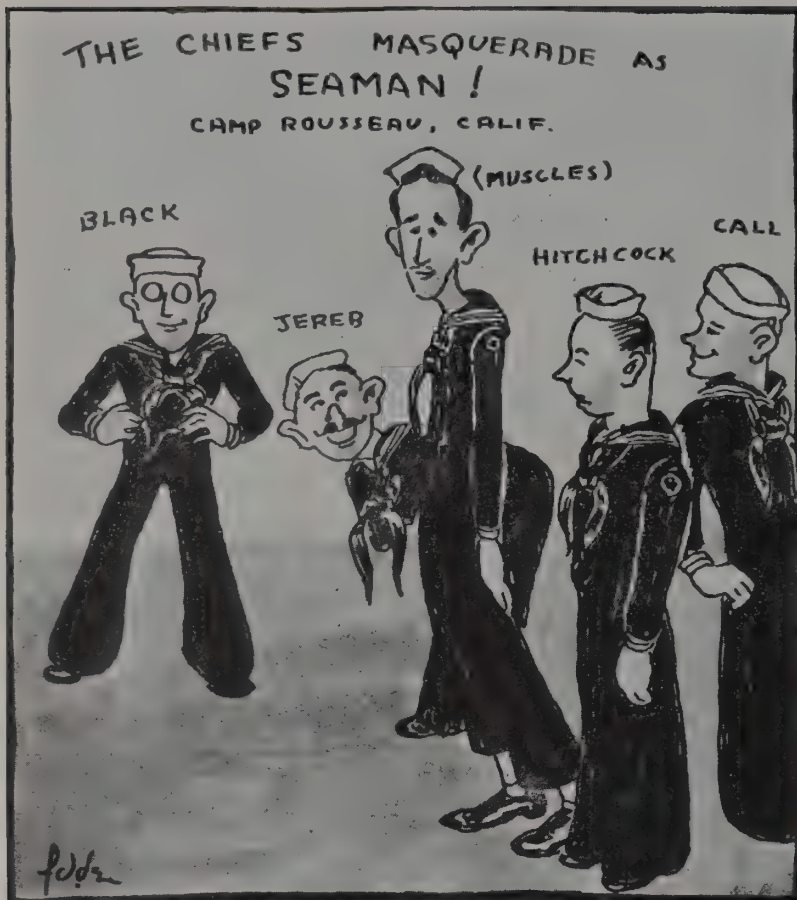 THE CHIEFS MASQUERADE AS
SEAMAN!
CAMP ROUSSEAU, CALIF.
(MUSCLES)
BLACK
CALL
HITCHCOCK
JEREB